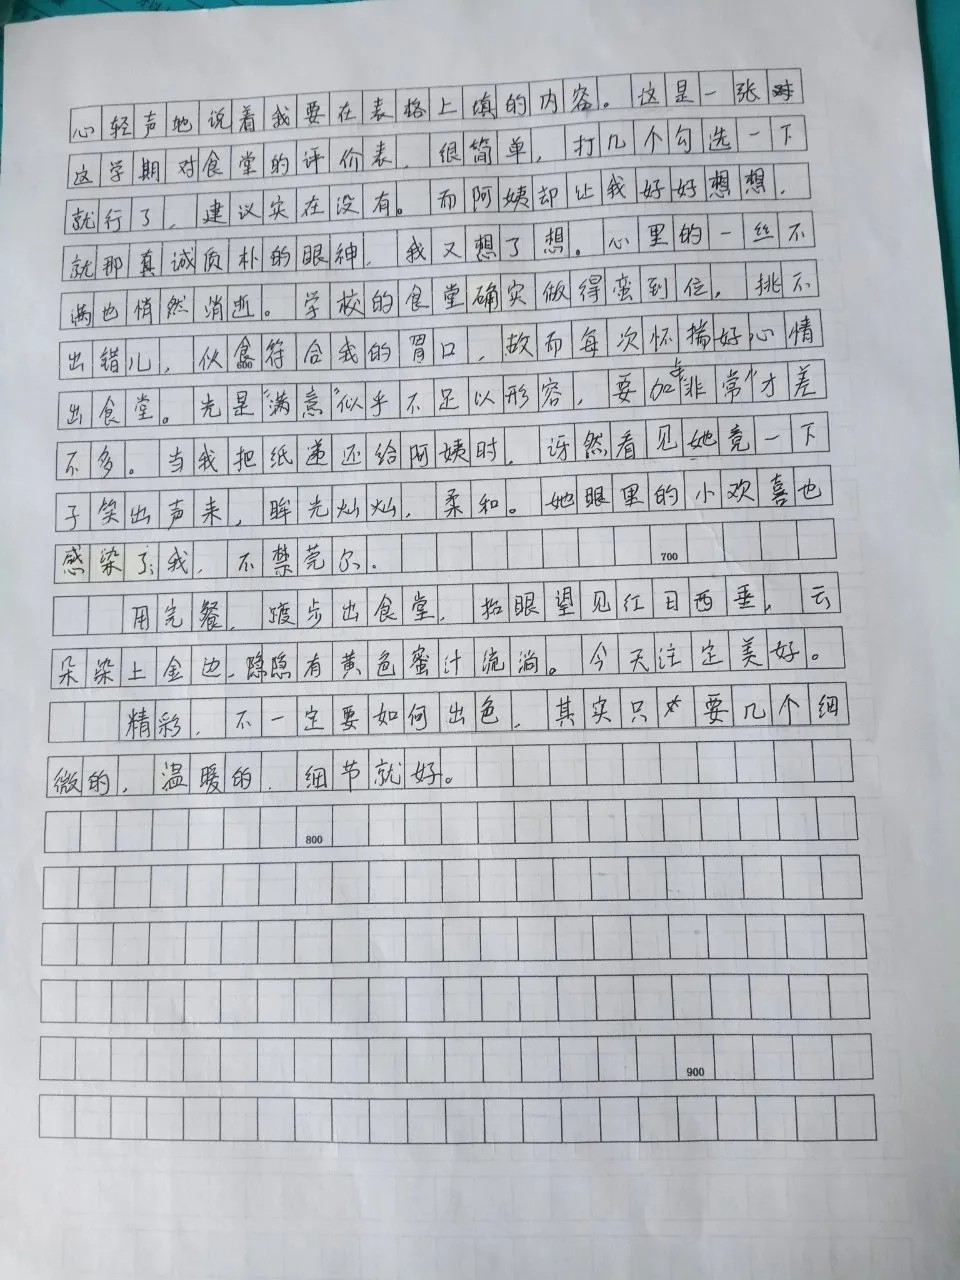 心轻声地说着我要在表格上填的内容。这是一张
这学期对食堂的评价表，很简单，打几个勾选一下
就行了，建议实在没有。而阿姨却让我好好想想，
就那真诚质朴的眼神，我又想了想。心里的一丝不
满也悄然消逝。学校的食堂确实做得蛮到位，挑不
出错儿，伙食符合我的胃口，故而每次怀揣好心情
600
出食堂。光是“满意”似乎不足以形容，要加去“非常”才差
不多。当我把纸递还给阿姨时，讶然看见她竟一下
子笑出声来，眸光灿灿，柔和。她眼里的小欢喜也
感染了我，不禁莞尔．
700
用完餐，踱步出食堂，抬眼望见红日西垂，云
朵染上金边，隐隐有黄色蜜汁流淌。今天注定美好。
精彩，不一定要如何出色，其实只要几个细
微的，温暖的，细节就好。
800
900